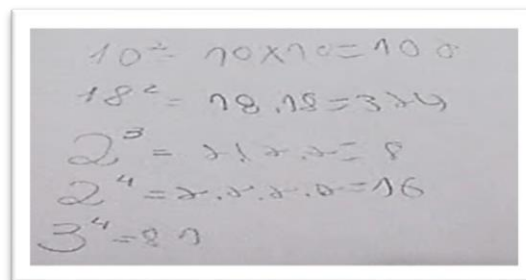 10² = 10×10=100
18² = 18.18=324
2³ = 2.2.2= 8
2⁴ = 2.2.2.2=16
3⁴ = 81